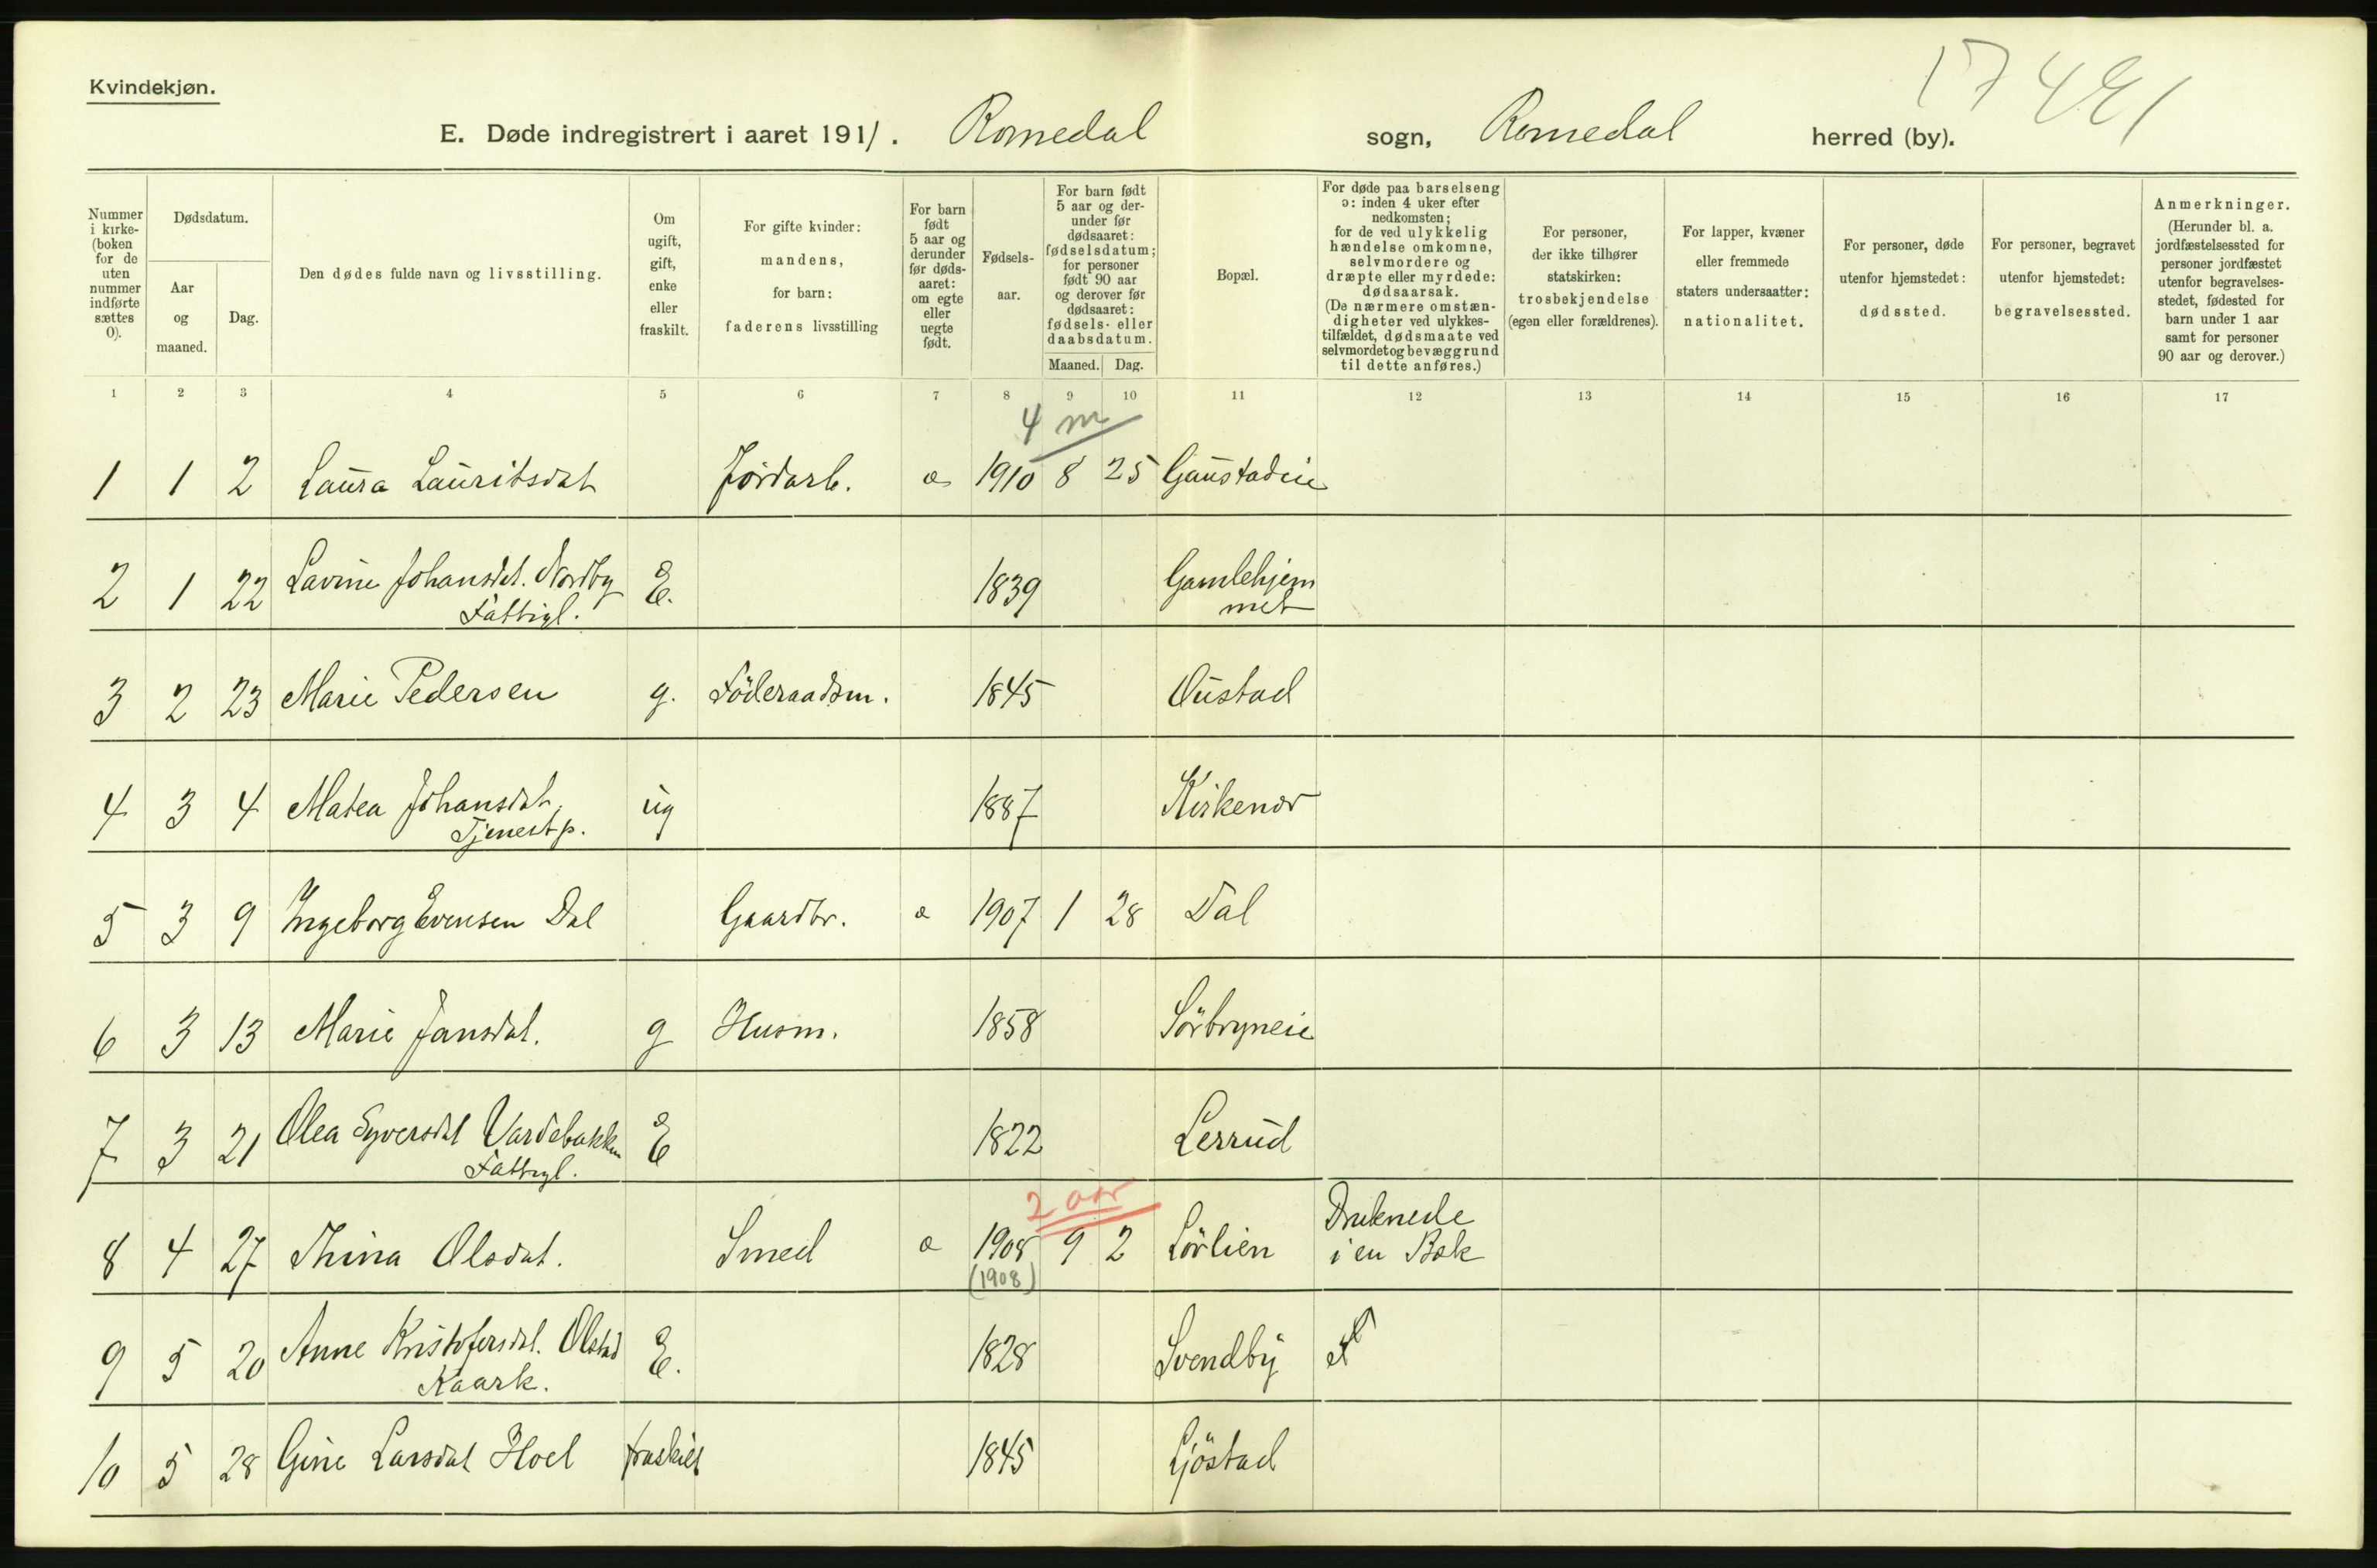 Kvindekjøn.
17 441
E. Døde indregistrert i aaret 1911. Romedal sogn, Romedal herred (by).
Nummer i kirke- (boken for de uten nummer indførte sættes 0).
Dødsdatum.
Aar og maaned.
Dag.
Den dødes fulde navn og livsstilling.
Om ugift, gift, enke eller fraskilt.
For gifte kvinder: mandens, for barn: faderens livsstilling
For barn født 5 aar og derunder før døds- aaret: om egte eller uegte født.
Fødsels- aar.
For barn født 5 aar og der- under før dødsaaret: fødselsdatum; for personer født 90 aar og derover før dødsaaret: fødsels- eller daabsdatum.
Maaned. Dag.
Bopæl.
For døde paa barselseng ɔ: inden 4 uker efter nedkomsten; for de ved ulykkelig hændelse omkomne, selvmordere og dræpte eller myrdede: dødsaarsak. (De nærmere omstæn- digheter ved ulykkes- tilfældet, dødsmaate ved selvmordet og bevæggrund til dette anføres.)
For personer, der ikke tilhører statskirken: trosbekjendelse (egen eller forældrenes).
For lapper, kvæner eller fremmede staters undersaatter: nationalitet.
For personer, døde utenfor hjemstedet: dødssted.
For personer, begravet utenfor hjemstedet: begravelsessted.
Anmerkninger. (Herunder bl. a. jordfæstelsessted for personer jordfæstet utenfor begravelses- stedet, fødested for barn under 1 aar samt for personer 90 aar og derover.)
1 2 3 4 5 6 7 8 9 10 11 12 13 14 15 16 17
4 m
1 1 2 Laura Lauritsdat Jordarb. e 1910 8 25 Gaustadeie
2 1 22 Lavine Johansdat. Nordby E. 1839 Gamlehjem
Fattigl. met
3 2 23 Marie Pedersen g. Föderaadsm. 1845 Oustad
4 3 4 Matea Johansdat, ug 1887 Kirkenær
Tjenestp.
5 3 9 Ingeborg Evensen Dal Gaardbr. e 1907 1 28 Dal
6 3 13 Marie Jansdat. g Husm. 1858 Sörbryneie
7 3 21 Olea Syversdat Vardebakken E 1822 Lerrud
Fattigl.
2 aar
8 4 27 Thina Olsdat. Smed e 1908 9 2 Lörlien Druknede
(1908) i en Bæk
9 5 20 Anne Kristofersdat. Olstad E. 1828 Svendby
Kaark.
10 5 28 Gine Larsdat Hoel fraskilt 1845 Gjöstad